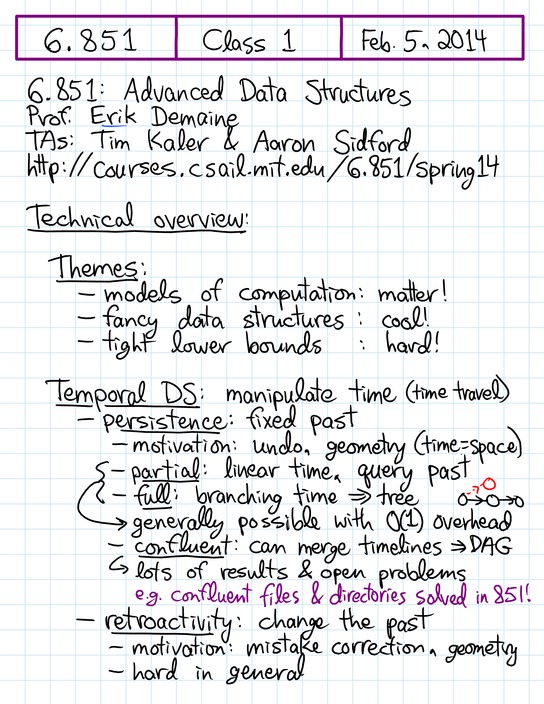 6.851 Class 1 Feb. 5, 2014
6.851: Advanced Data Structures
Prof. Erik Demaine
TAs: Tim Kaler & Aaron Sidford
http://courses.csail.mit.edu/6.851/spring14
Technical overview:
Themes:
– models of computation: matter!
– fancy data structures : cool!
– tight lower bounds : hard!
Temporal DS: manipulate time (time travel)
– persistence: fixed past
– motivation: undo, geometry (time=space)
– partial: linear time, query past
– full: branching time ⇒ tree
→ generally possible with O(1) overhead
– confluent: can merge timelines ⇒ DAG
↳ lots of results & open problems
e.g. confluent files & directories solved in 851!
– retroactivity: change the past
– motivation: mistake correction, geometry
– hard in general